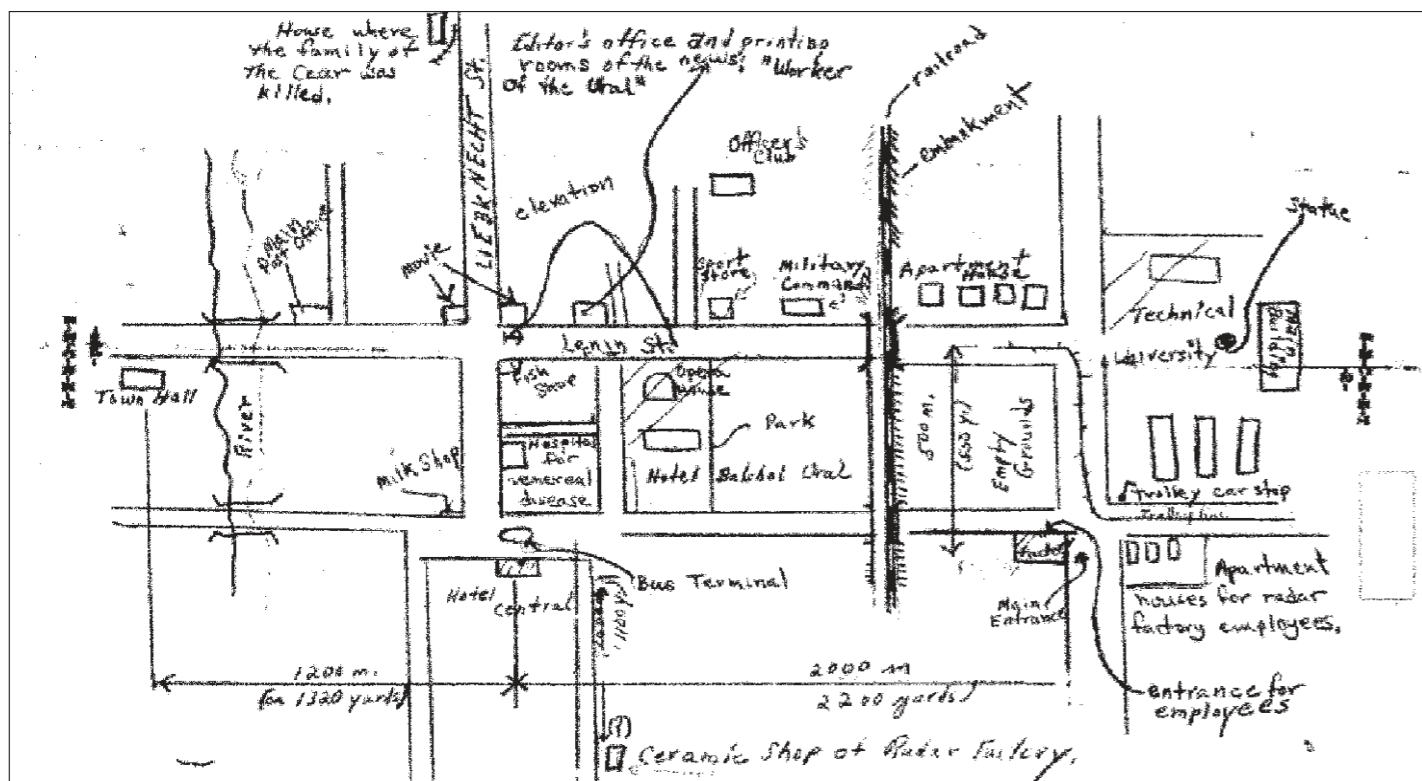 House where
the family of
the Czar was
killed.
LIEBKNECHT St.
Editor's office and printing
rooms of the news: "Worker
of the Ural"
railroad
embankment
Officer's
Club
elevation
Statue
Main
movie
Sport
Store
Military
Command
Apartment
House
Technical
University
Main
Building
Lenin St.
Town Hall
River
Fish
Store
Opera
House
Park
500 m.
(550 yd)
Empty
Grounds
Milk Shop
Hospital
for
venereal
disease
Hotel Balshol Ural
Trolley car stop
Trolley line
Factory
Bus Terminal
Hotel
Central
Main
Entrance
Apartment
houses for radar
factory employees.
1200 m.
1320 yards)
2000 m
2200 yards)
entrance for
employees
(?)
Ceramic Shop of Radar Factory.